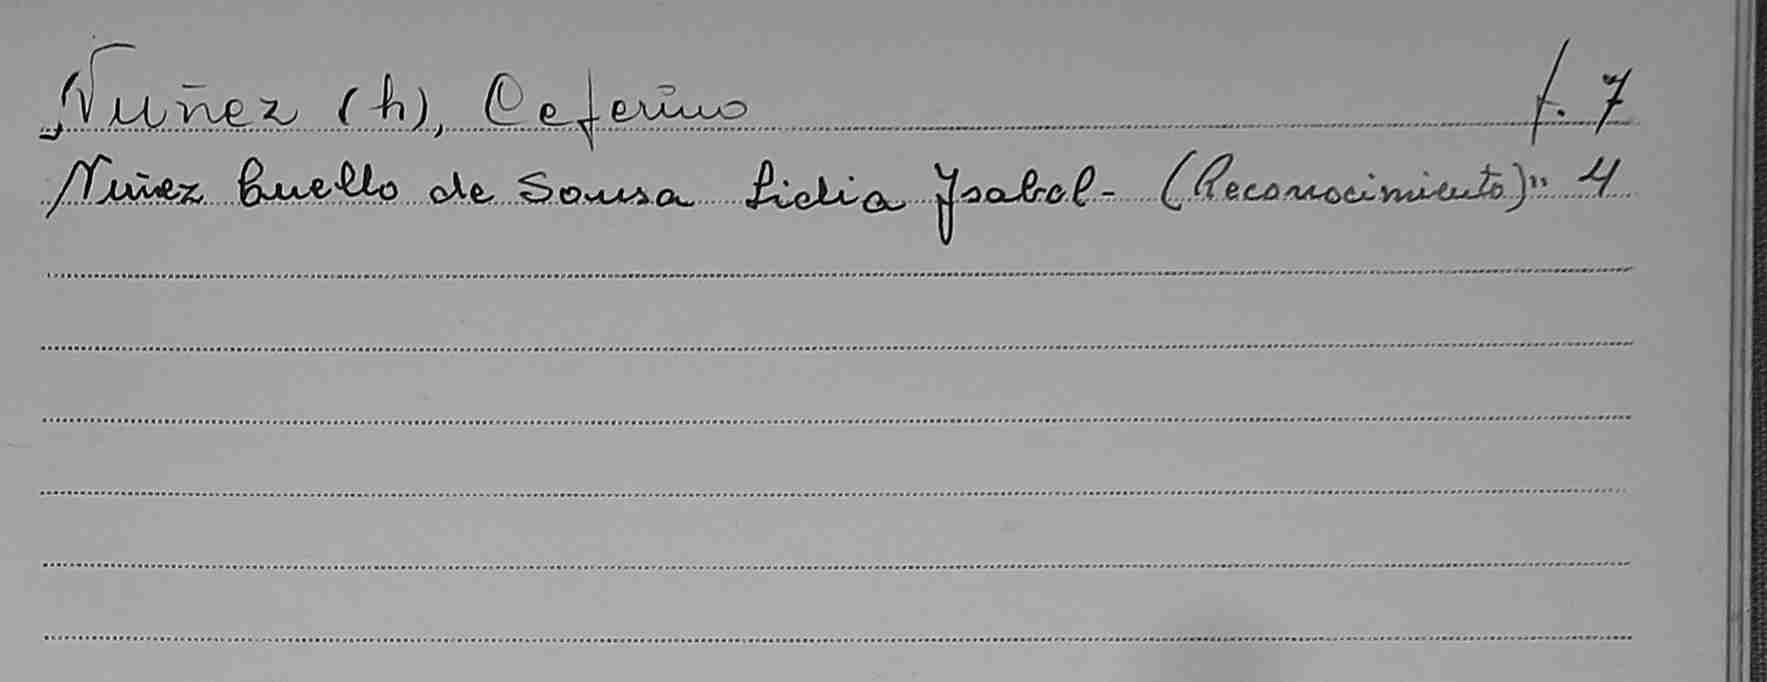 Nuñez (h), Ceferino f. 7
Nuñez Cuello de Sousa Lidia Ysabel- (Reconocimiento) " 4